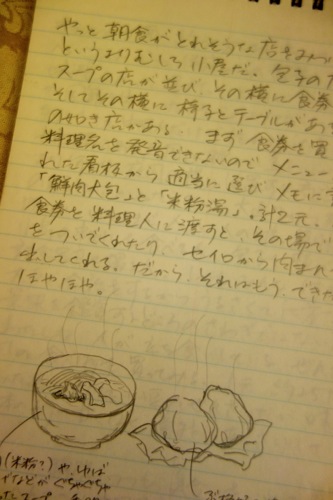 やっと朝食がとれそうな店をみつ
というよりむしろ小屋だ。包子の
スープの店が並び、その横に食券
そしてその横に椅子とテーブルがあ
の如き店がある。まず食券を買
料理名を発音できないので メニュー
れた看板から適当に選び メモに
「鮮肉大包」と「米粉湯」。計2元。
食券を料理人に渡すと、その場で
をついでくれたり、セイロから肉まん
出してくれる。だから、それはもう、できた
ほやほや。
(米粉?)や、ゆば
などがぐちゃぐちゃ
スープ